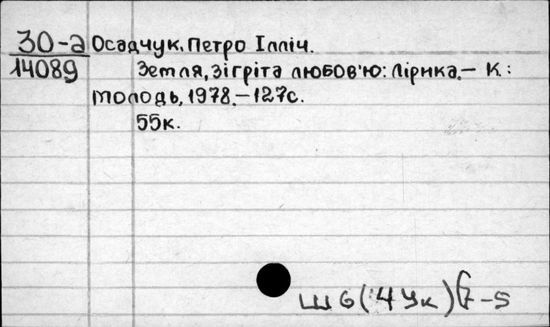 30-а Осадчук, Петро Ілліч.
14089 Земля, зігріта любов'ю: Лірика. – К.:
Молодь, 1978. – 127с.
55к.
Ш6(4Ук)